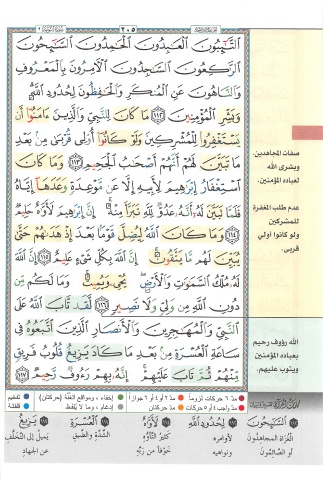 ٢٠٥
التَّـٰٓئِبُونَ الْعَـٰبِدُونَ الْحَـٰمِدُونَ السَّـٰٓئِحُونَ
الرَّٰكِعُونَ السَّـٰجِدُونَ الْءَامِرُونَ بِالْمَعْرُوفِ
وَالنَّاهُونَ عَنِ الْمُنكَرِ وَالْحَـٰفِظُونَ لِحُدُودِ اللَّهِ
وَبَشِّرِ الْمُؤْمِنِينَ ١١٢ مَا كَانَ لِلنَّبِيِّ وَالَّذِينَ ءَامَنُوٓا أَن
يَسْتَغْفِرُوا لِلْمُشْرِكِينَ وَلَوْ كَانُوٓا أُولِى قُرْبَىٰ مِنۢ بَعْدِ
مَا تَبَيَّنَ لَهُمْ أَنَّهُمْ أَصْحَـٰبُ الْجَحِيمِ ١١٣ وَمَا كَانَ
اسْتِغْفَارُ إِبْرَٰهِيمَ لِأَبِيهِ إِلَّا عَن مَّوْعِدَةٍ وَعَدَهَآ إِيَّاهُ
فَلَمَّا تَبَيَّنَ لَهُۥٓ أَنَّهُۥ عَدُوٌّ لِّلَّهِ تَبَرَّأَ مِنْهُ ۚ إِنَّ إِبْرَٰهِيمَ لَأَوَّٰهٌ حَلِيمٌ
١١٤ وَمَا كَانَ اللَّهُ لِيُضِلَّ قَوْمًۢا بَعْدَ إِذْ هَدَىٰهُمْ حَتَّىٰ
يُبَيِّنَ لَهُم مَّا يَتَّقُونَ ۚ إِنَّ اللَّهَ بِكُلِّ شَىْءٍ عَلِيمٌ ١١٥ إِنَّ اللَّهَ
لَهُۥ مُلْكُ السَّمَـٰوَٰتِ وَالْأَرْضِ ۖ يُحْىِۦ وَيُمِيتُ ۚ وَمَا لَكُم مِّن
دُونِ اللَّهِ مِن وَلِىٍّ وَلَا نَصِيرٍ ١١٦ لَّقَد تَّابَ اللَّهُ عَلَى
النَّبِىِّ وَالْمُهَـٰجِرِينَ وَالْأَنصَارِ الَّذِينَ اتَّبَعُوهُ فِى
سَاعَةِ الْعُسْرَةِ مِنۢ بَعْدِ مَا كَادَ يَزِيغُ قُلُوبُ فَرِيقٍ
مِّنْهُمْ ثُمَّ تَابَ عَلَيْهِمْ ۚ إِنَّهُۥ بِهِمْ رَءُوفٌ رَّحِيمٌ ١١٧
صفات المجاهدين.
وبشرى الله
لعباده المؤمنين.
عدم طلب المغفرة
للمشركين
ولو كانوا أولي
قربى.
الله رؤوف رحيم
بعباده المؤمنين
ويتوب عليهم.
مدّ ٦ حركات لزوماً مدّ ٢ أو ٤ أو ٦ جوازاً إخفاء، ومواقع الغُنَّة (حركتان) تفخيم
مدّ واجب ٤ أو ٥ حركات مدّ حركتان إدغام، وما لا يُلفَظ قلقلة
السَّائِحُونَ
الغُزاة المجاهدون
أو الصَّائمون
لِحُدُودِ اللهِ
لأوامره
ونواهيه
لَأَوَّاهٌ
كثير التَّأَوُّه
خوفاً من ربِّه
العُسْرَةِ
الشِّدَّة والضِّيق
يَزِيغُ
يميل إلى التَّخلُّف
عن الجهاد